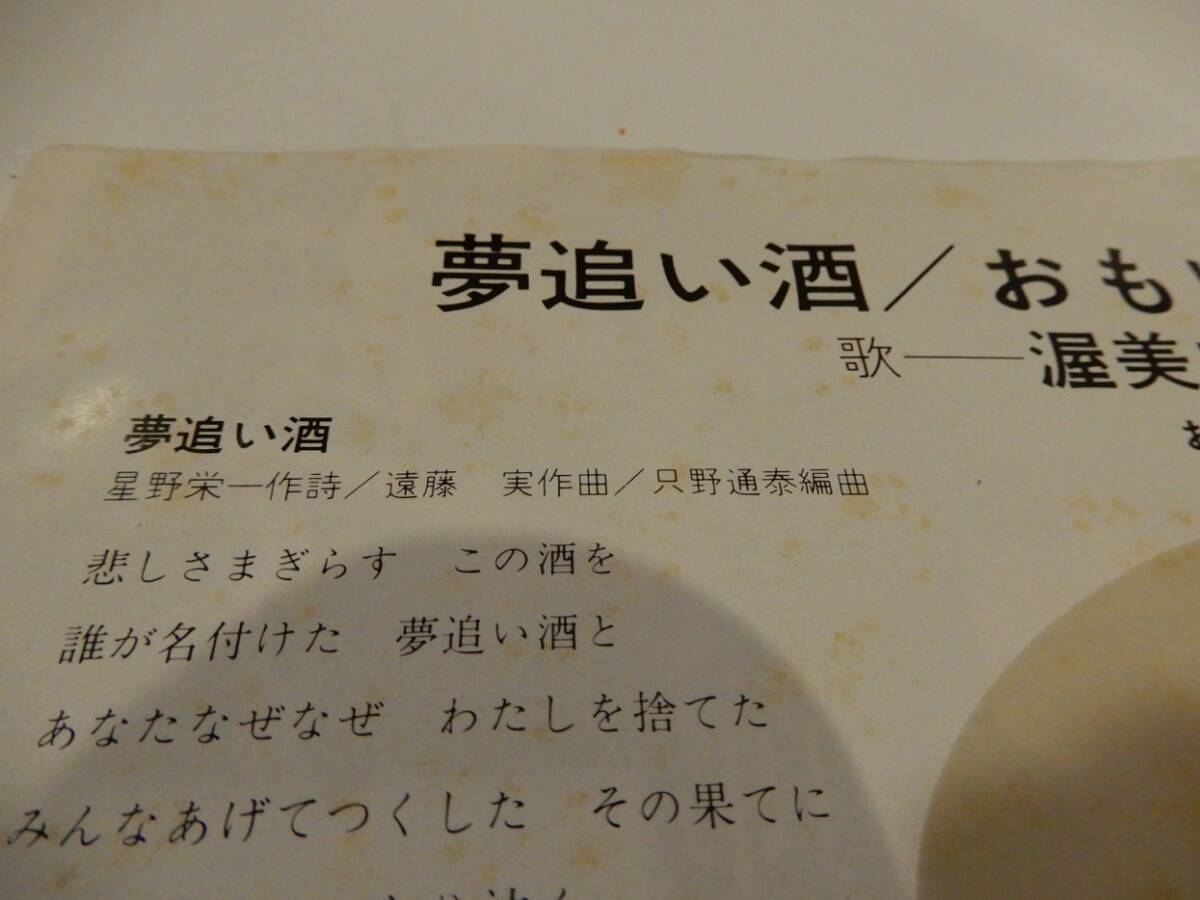 夢追い酒／おも
歌――渥美
夢追い酒
星野栄一作詩／遠藤　実作曲／只野通泰編曲
悲しさまぎらす　この酒を
誰が名付けた　夢追い酒と
あなたなぜなぜ　わたしを捨てた
みんなあげてつくした　その果てに